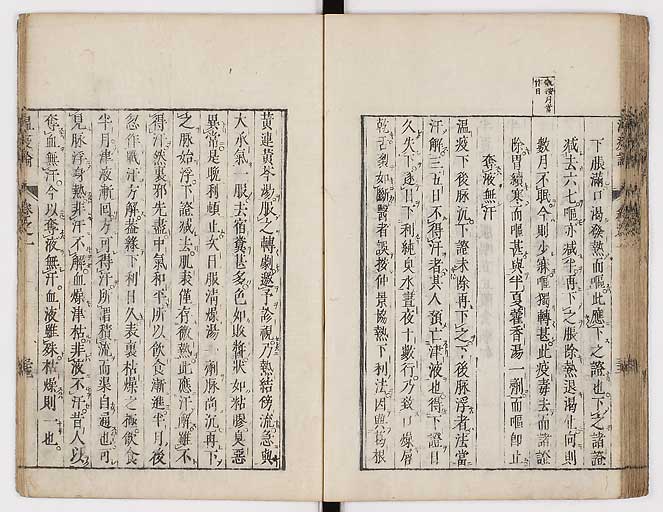 下脹滿口渴發熱而嘔此應下之證也下之諸證
減去六七嘔亦減半再下之脹除熱退渴止向則
數月不眠今則少寐嘔獨轉甚此疫毒去而諸證
除胃續寒而嘔甚與半夏藿香湯一劑而嘔即止
奪液無汗
溫疫下後脉沉下證未除再下之下後脉浮者法當
汗解三五日不得汗者其人預亡津液也得下證日
久失下逐日下利純臭水晝夜十數行乃致口燥唇
乾舌裂如斷醫者誤按仲景協熱下利法因與葛根
黃連黃芩湯服之轉劇邀予診視乃熱結傍流急與
大承氣一服去宿糞甚多色如敗醬狀如粘膠臭惡
異常是晚利頓止次日服清燥湯一劑脉尚沉再下
之脉始浮下證減去肌表僅存微熱此應汗解雖不
得汗然裏邪先盡中氣和平所以飲食漸進半月後
忽作戰汗方解蓋緣下利日久表裏枯燥之極飲食
半月津液漸回方可得汗所謂積流而渠自通也可
見脉浮身熱非汗不解血燥津枯非液不汗昔人以
奪血無汗今以奪液無汗血液雖殊枯燥則一也